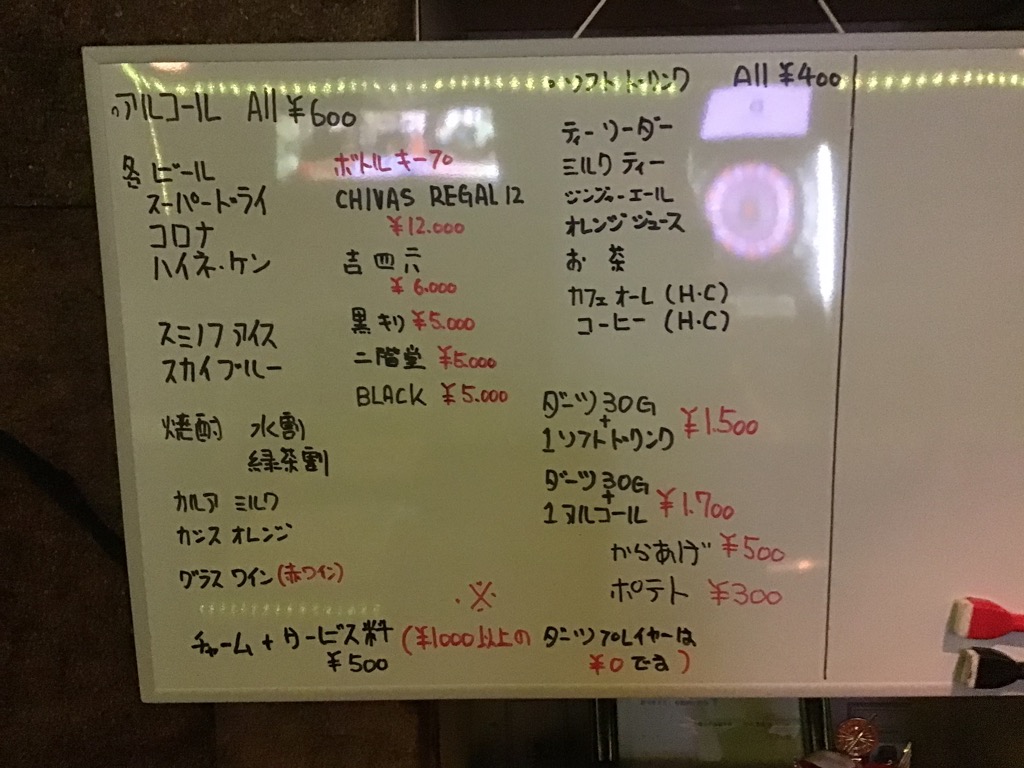 ・アルコール All ¥600
各ビール
スーパードライ
コロナ
ハイネ・ケン
スミノフアイス
スカイブルー
焼酎 水割
緑茶割
カルアミルク
カシスオレンジ
グラスワイン(赤ワイン)
ボトルキープ
CHIVAS REGAL 12
¥12.000
吉四六
¥6.000
黒キリ ¥5.000
二階堂 ¥5.000
BLACK ¥5.000
・ソフトドリンク All ¥400
ティーソーダー
ミルクティー
ジンジャーエール
オレンジジュース
お茶
カフェオーレ (H・C)
コーヒー (H・C)
ダーツ 30G
+
1ソフトドリンク
¥1.500
ダーツ 30G
+
1アルコール
¥1.700
からあげ ¥500
ポテト ¥300
※
チャーム + サービス料 (¥1000以上の ダーツプレイヤーは
¥500 ¥0 です)